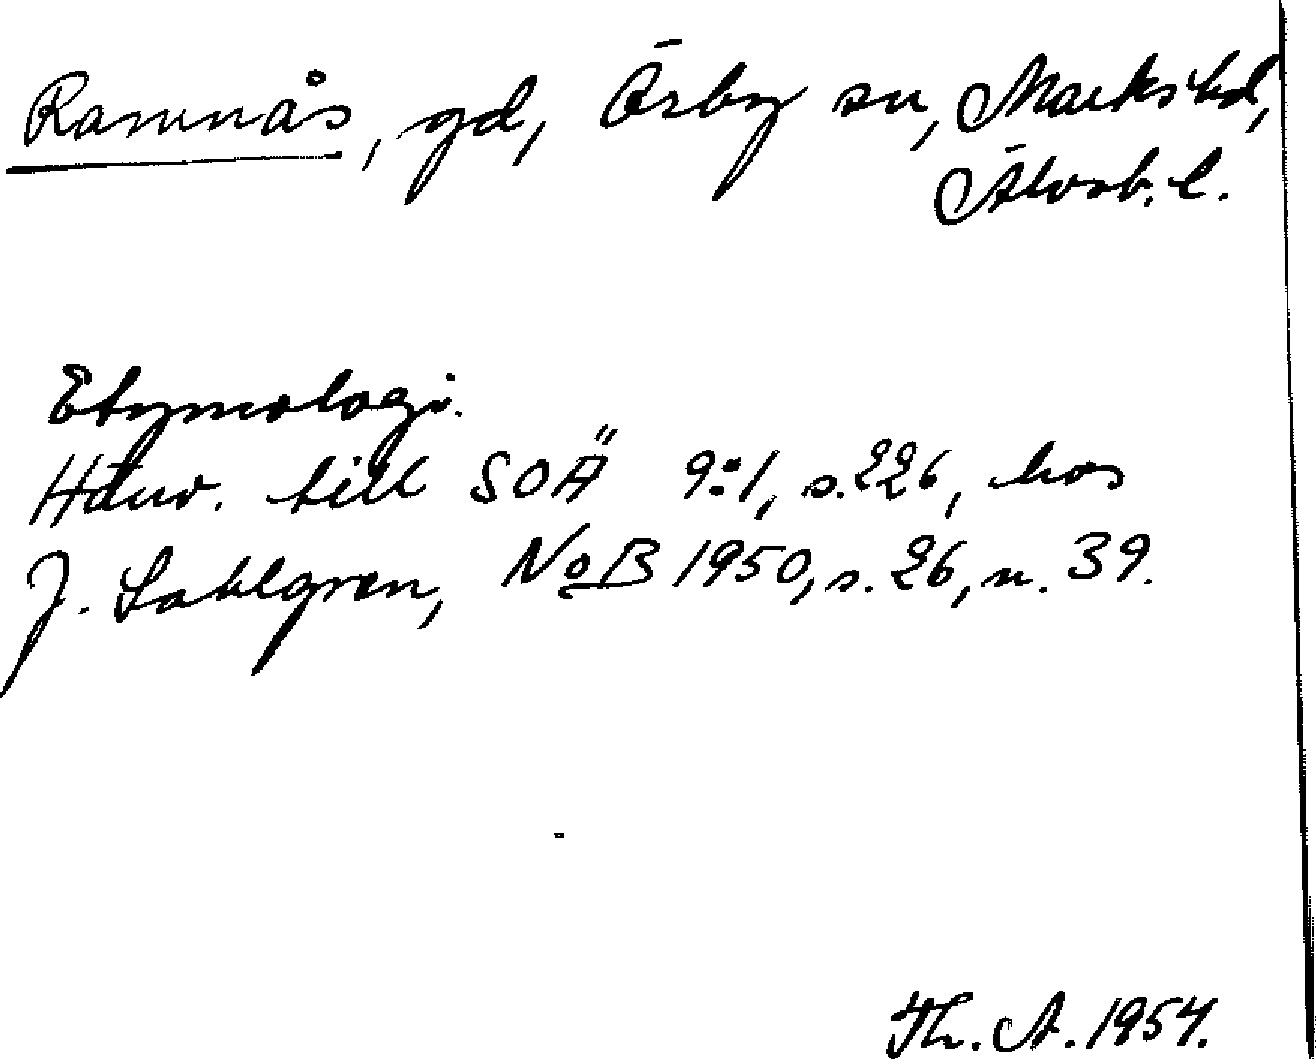 Ramnås, gd, Örby sn, Marks hd,
Älvsb. l.
Etymologi.
Hänv. till SOÄ 9:1, s. 226, hos
J. Sahlgren, NoB 1950, s. 26, n. 39.
Th. A. 1954.